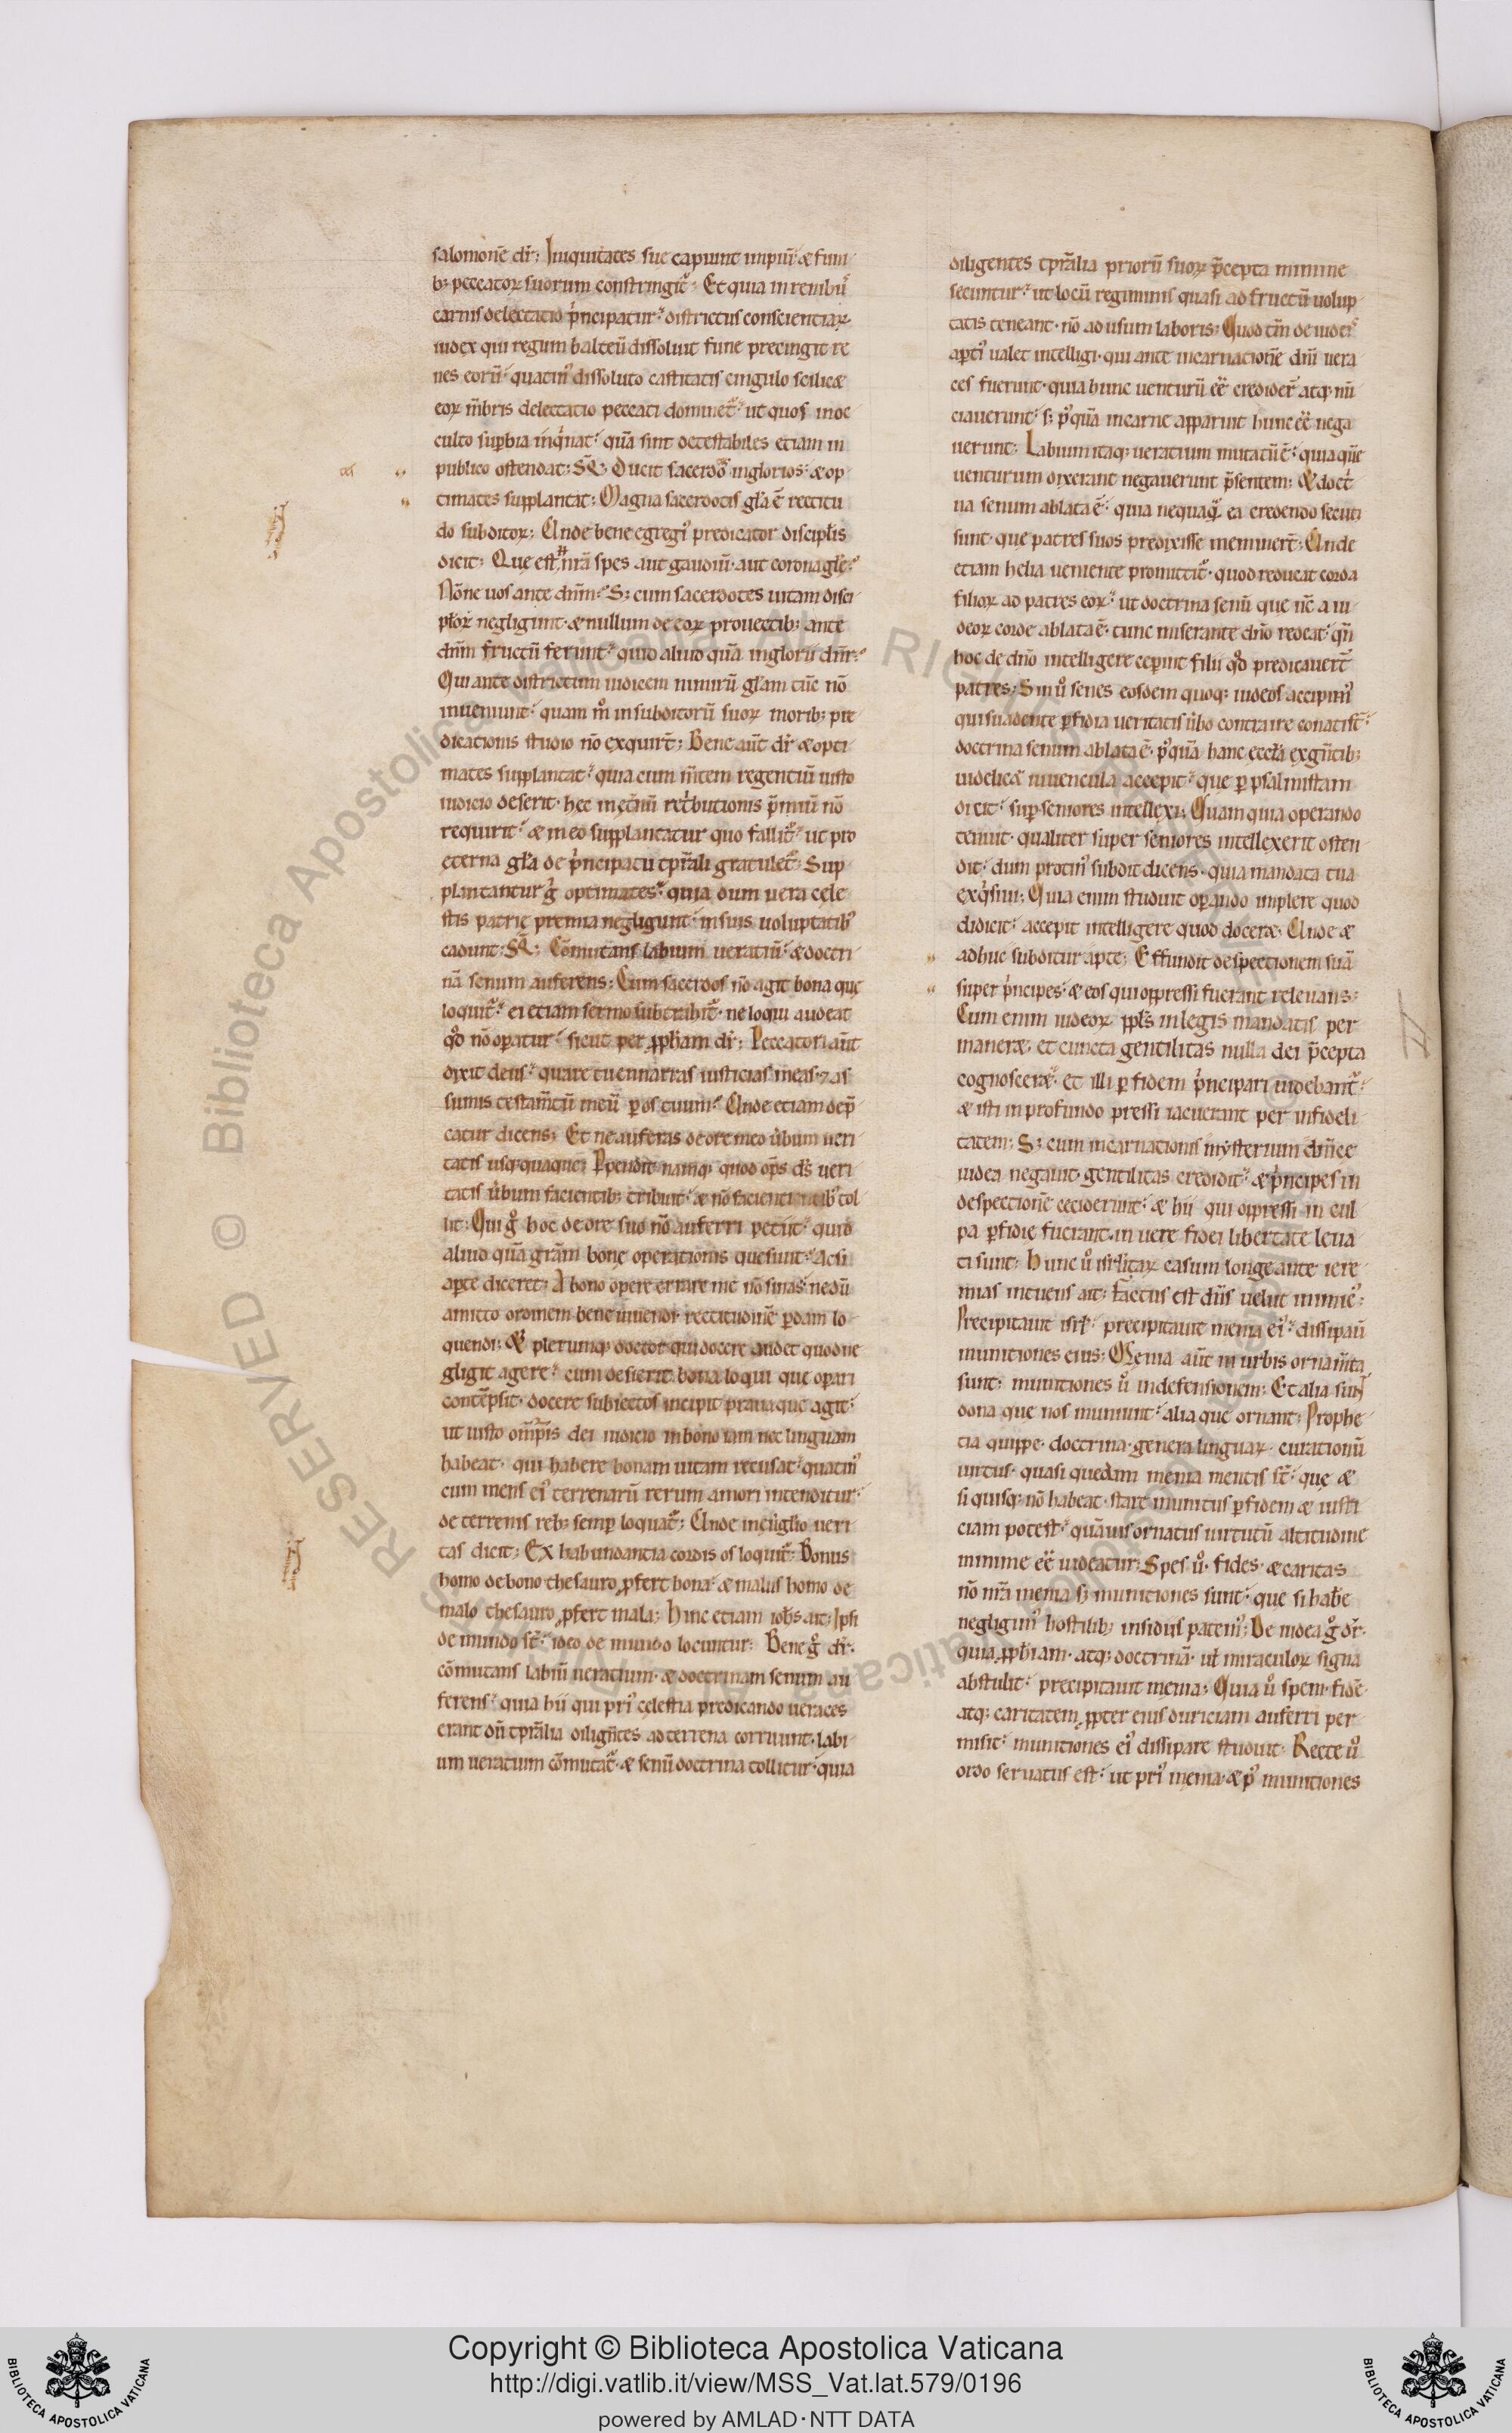 salomonē dr̄; Iniquitates sue capiunt impiū; & funi
b; peccatoꝝ suorum constringit᷑; Et quia in renibꝰ
carnis delectatio p̍ncipatur; districtus conscientiaꝝ
iudex qui regum balteū dissoluit fune precingit re
nes eorū; quatinꝰ dissoluto castitatis cingulo scilic&
eoꝝ m̄bris delectatio peccati dominet᷑; ut quos in oc
culto supbia inq̍nat; quā sint detestabiles etiam in
publico ostendat; Ducit sacerdō inglorios; & op
timates supplantat; Magna sacerdotis gl̄a ē rectitu
do subditoꝝ; Unde bene egregiꝰ predicator discipl̄is
dicit; Que est n̄rā spes aut gaudiū aut corona gl̄e;
Nōne uos ante dn̄m; S; cum sacerdotes uitam disci
pl̄oꝝ negligunt & nullum de eoꝝ prouectib; ante
dn̄m fructū ferunt; quid aliud quā inglorii dn̄r;
Qui ante districtum iudicem nimirū gl̄am tūc nō
inueniunt; quam m̊ in subditorū suoꝝ morib; pre
dicationis studio nō exquirt̄; Bene aūt dr̄ & opti
mates supplantat; quia cum m̄tem regentiū iusto
iudicio deserit hec inet̄nū ret̍butionis p̄miū nō
requirit; & in eo supplantatur quo fallit᷑; ut pro
eterna gl̄a de p̍ncipatu tp̄rali gratulet᷑; Sup
plantantur g̊ optimates; quia dum uera cele
stis patrie premia negligunt; in suis uoluptatibꝰ
cadunt; Cōmutans labium ueratiū; & doctri
nā senum auferens; Cum sacerdos nō agit bona que
loquit᷑; ei etiam sermo subtrahit᷑ ne loqui audeat
qd̄ nō operatur; sicut per ꝓph̄am dr̄; Peccatori aūt
dixit deus; quare tu enarras iusticias meas ⁊ as
sumis testam̄tū meū p os tuum; Unde etiam dep̄
catur dicens; Et ne auferas de ore meo u̍bum ueri
tatis usq;quaque; Ppendit namq; quod op̄s d̄s ueri
tatis u̍bum facientib; tribuit; & nō facientibꝰ tol
lit; Qui g̊ hoc de ore suo nō auferri petiit; quid
aliud quā grām bone operationis quesiuit; Ac si
apte diceret; A bono opere errare me nō sinas; ne dū
amitto ordinem bene uiuendi rectitudinē pdam lo
quendi; & plerumq; doctor qui docere audet quod ne
gligit agere; cum desierit bona loqui que operari
contēpsit docere subiectos incipit praua que agit;
ut iusto om̄ipt̄is dei iudicio in bono iam nec linguam
habeat qui habere bonam uitam recusat; quatinꝰ
cum mens eiꝰ terrenarū rerum amori intenditur
de terrenis reb; semp loquat᷑; Unde in eu̍glio ueri
tas dicit; Ex habundantia cordis os loquit᷑; Bonus
homo de bono thesauro ꝓfert bona; & malus homo de
malo thesauro ꝓfert mala; Hinc etiam ioh̄s ait; Ipsi
de mundo st̄; ideo de mundo locuntur; Bene g̊ dr̄
cōmutans labiū ueratium & doctrinam senum au
ferens; quia hii qui priꝰ celestia predicando ueraces
erant dū tp̄ralia dilign̄tes ad terrena corruunt labi
um ueratium cōmutat᷑ & senū doctrina tollitur quia
diligentes tp̄ralia priorū suoꝝ p̄cepta minime
secuntur; ut locū regiminis quasi ad fructū uolup
tatis teneant nō ad usum laboris; Quod tm̄ de iudeis
aptiꝰ ualet intelligi qui ante incarnationē dn̄i uera
ces fuerunt quia hunc uenturū ēē credider̄ atq; nū
ciauerunt; s; pꝰquā incarne apparuit hunc ēē nega
uerunt; Labium itaq; ueratium mutatū ē; quia quē
uenturum dixerant negauerunt p̄sentem; & doct̍
na senum ablata ē; quia nequaq̄ ea credendo secuti
sunt que patres suos predixisse meminert̄; Unde
etiam helia ueniente promittit᷑ quod reducat corda
filioꝝ ad patres eoꝝ; ut doctrina senū que nc̄ a iu
deoꝝ corde ablata ē tunc miserante dn̄o redeat; qn̄
hoc de dn̄o intelligere ceperint filii qd̄ predicauert̄
patres; Sin u̍ senes eosdem quoq; iudeos accipimꝰ
qui suadente pfidia ueritatis u̍bo contraire conati st̄;
doctrina senum ablata ē pꝰquā hanc eccl̄a exgn̄tib;
uidelic& iuuencula accepit; que p psalmistam
dicit; sup seniores intellexi; Quam quia operando
tenuit qualiter super seniores intellexerit osten
dit; dum protinꝰ subdit dicens quia mandata tua
exq̍siui; Quia enim studuit operando implere quod
didicit; accepit intelligere quod docer&; Unde &
adhuc subditur apte; Effundit despectionem suā
super p̍ncipes; & eos qui oppressi fuerant releuans;
Cum enim iudeoꝝ ppl̄s in legis mandatis per
maner& et cuncta gentilitas nulla dei p̄cepta
cognoscer&; et illi p fidem p̍ncipari uidebant᷑;
& isti in profundo pressi iacuerant per infideli
tatem; S; cum incarnationis mysterium dn̄ice
iudea negauit gentilitas credidit; & p̍ncipes in
despectionē ceciderunt; & hii qui oppressi in cul
pa pfidie fuerant in uere fidei libertate leua
ti sunt; Hunc u̍ isrl̄itaꝝ casum longe ante iere
mias intuens ait; Factus est dn̄s uelut inimicꝰ;
Precipitauit isrl̄; precipitauit menia eiꝰ; dissipauī
munitiones eius; Menia aūt in urbis ornam̄ta
sunt; munitiones u̍ indefensionem; Et alia sunt
dona que nos muniunt; alia que ornant; Prophe
tia quippe doctrina genera linguaꝝ curationū
uirtus quasi quedam menia mentis st̄; que &
si quisq; nō habeat stare munitus p fidem & iusti
ciam potest; quāuis ornatus uirtutū altitudine
minime ēē uideatur; Spes u̍ fides & caritas
nō n̄rā menia s; munitiones sunt; que si habe
negligimꝰ hostilib; insidiis patemꝰ; De iudea g̊ dr̄
quia ꝓph̄iam atq; doctrinā ul̄ miraculoꝝ signa
abstulit; precipitauit menia; Quia u̍ spem fidē
atq; caritatem ꝓpter eius duriciam auferri per
misit; munitiones eiꝰ dissipare studuit; Recte u̍
ordo seruatus est; ut priꝰ menia & pꝰ munitiones
Copyright © Biblioteca Apostolica Vaticana
http://digi.vatlib.it/view/MSS_Vat.lat.579/0196
powered by AMLAD·NTT DATA
BIBLIOTECA APOSTOLICA VATICANA
BIBLIOTECA APOSTOLICA VATICANA